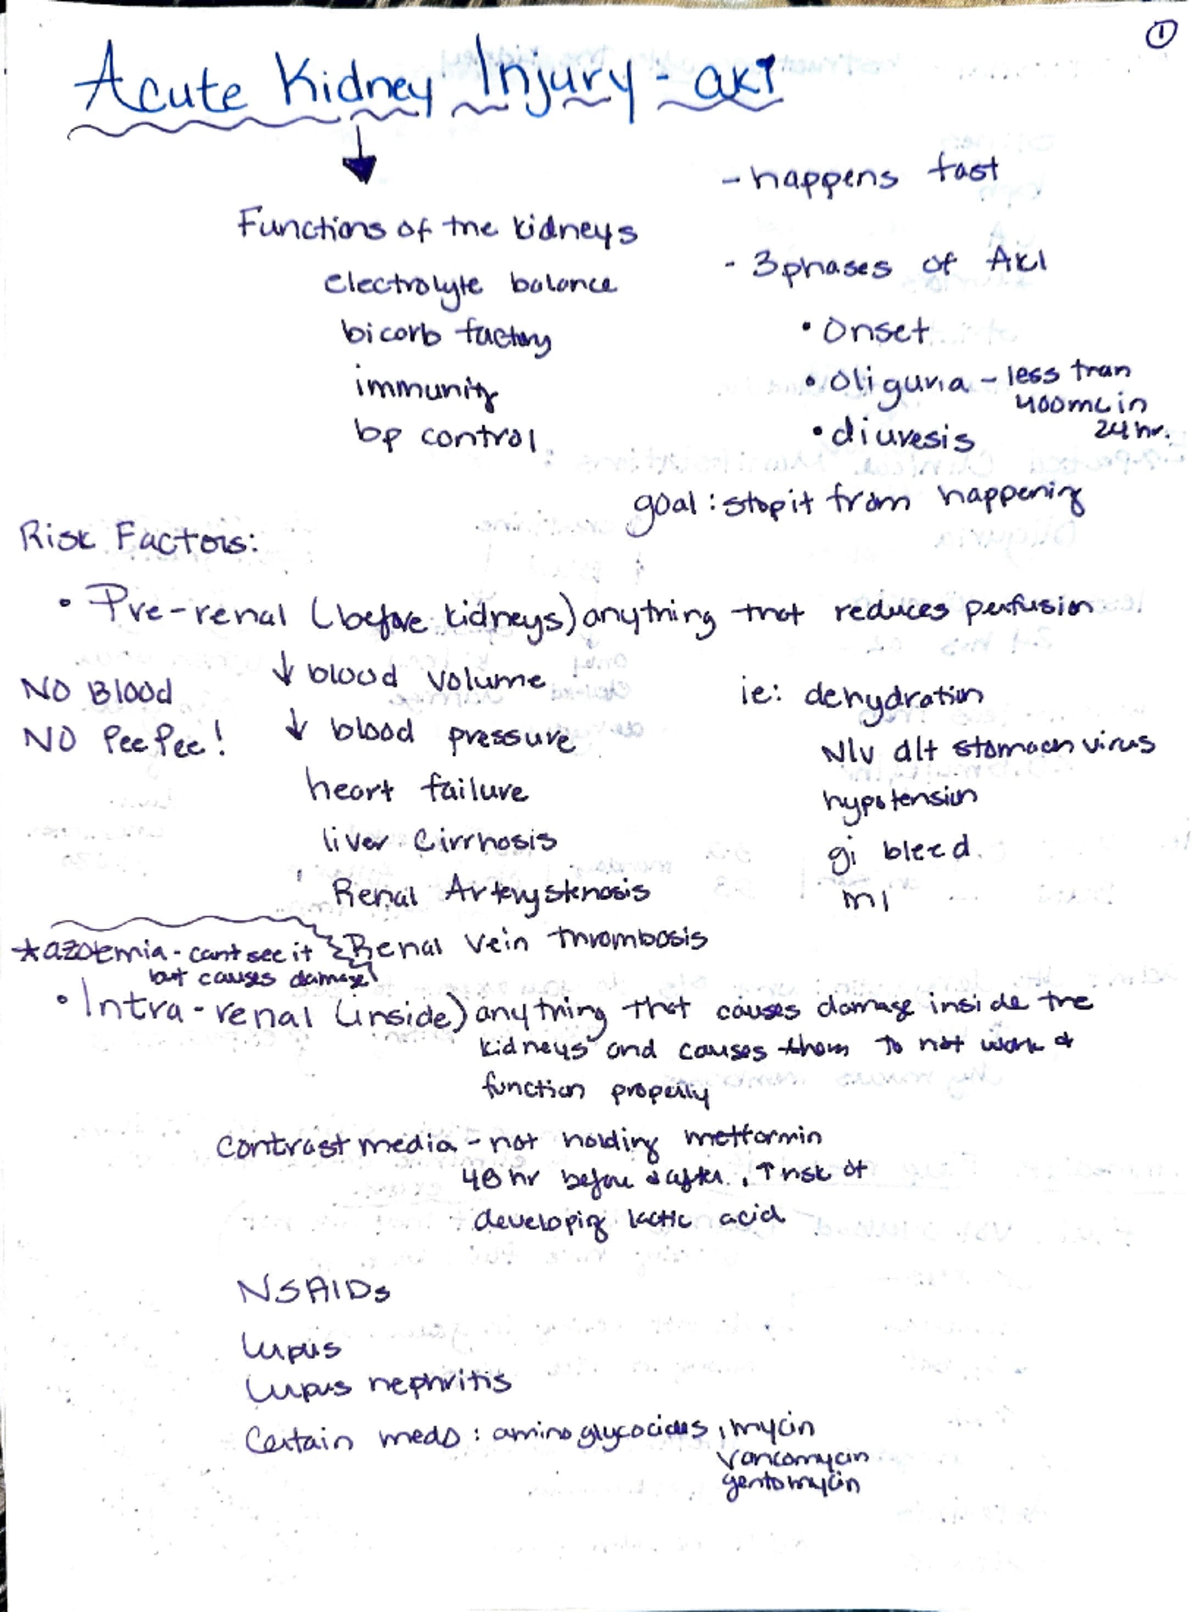 1
Acute Kidney Injury - aki
Functions of the kidneys
electrolyte balance
bicarb factory
immunity
bp control
- happens fast
- 3 phases of AKI
• Onset
• Oliguria - less than
400mL in
24 hr.
• diuresis
goal: stop it from happening
Risk Factors:
• Pre-renal (before kidneys) anything that reduces perfusion
NO Blood
NO PeePee!
↓ blood volume
↓ blood pressure
heart failure
liver Cirrhosis
Renal Artery stenosis
Renal Vein thrombosis
ie: dehydration
N/v d/t stomach virus
hypotension
gi bleed
MI
*azotemia - cant see it
but causes damage!
• Intra-renal (inside) anything that causes damage inside the
kidneys and causes them to not work &
function properly
Contrast media - not holding metformin
48 hr before & after. ↑ risk of
developing lactic acid
NSAIDs
Lupus
Lupus nephritis
Certain meds: aminoglycocides, mycin
vancomycin
gentomycin